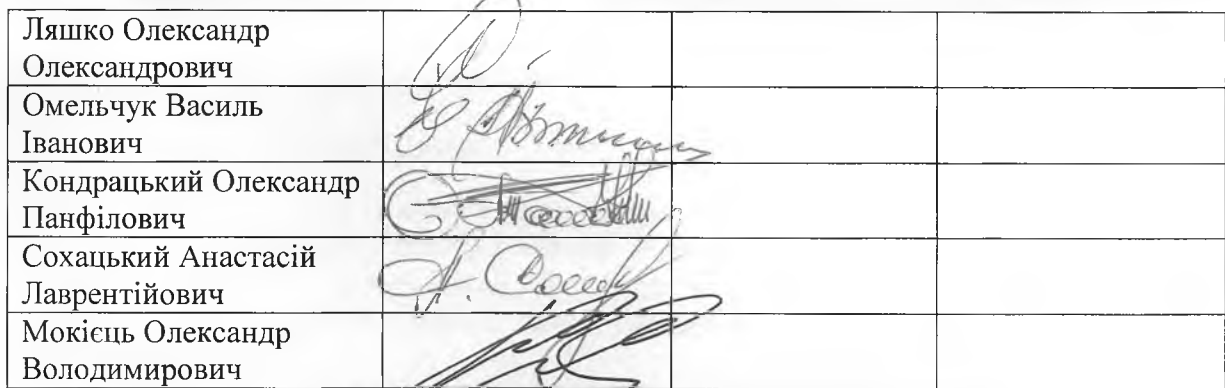 Ляшко Олександр
Олександрович
Омельчук Василь
Іванович
Кондрацький Олександр
Панфілович
Сохацький Анастасій
Лаврентійович
Мокієць Олександр
Володимирович